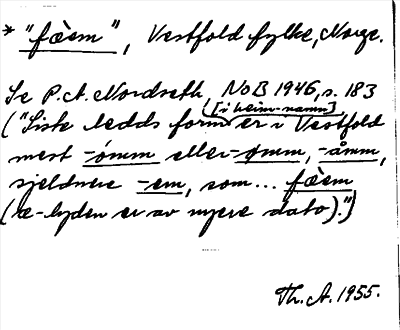 * "fæ̀em", Vestfold fylke, Norge.
Se P. A. Nordseth, NoB 1946, s. 183
[i heim-namn]
("Siste ledds form er i Vestfold
mest -ómm eller -ømm, -åmm,
sjeldnere -em, som... fæ̀em
(æ-lyden er av nyere dato).")
Th. A. 1955.